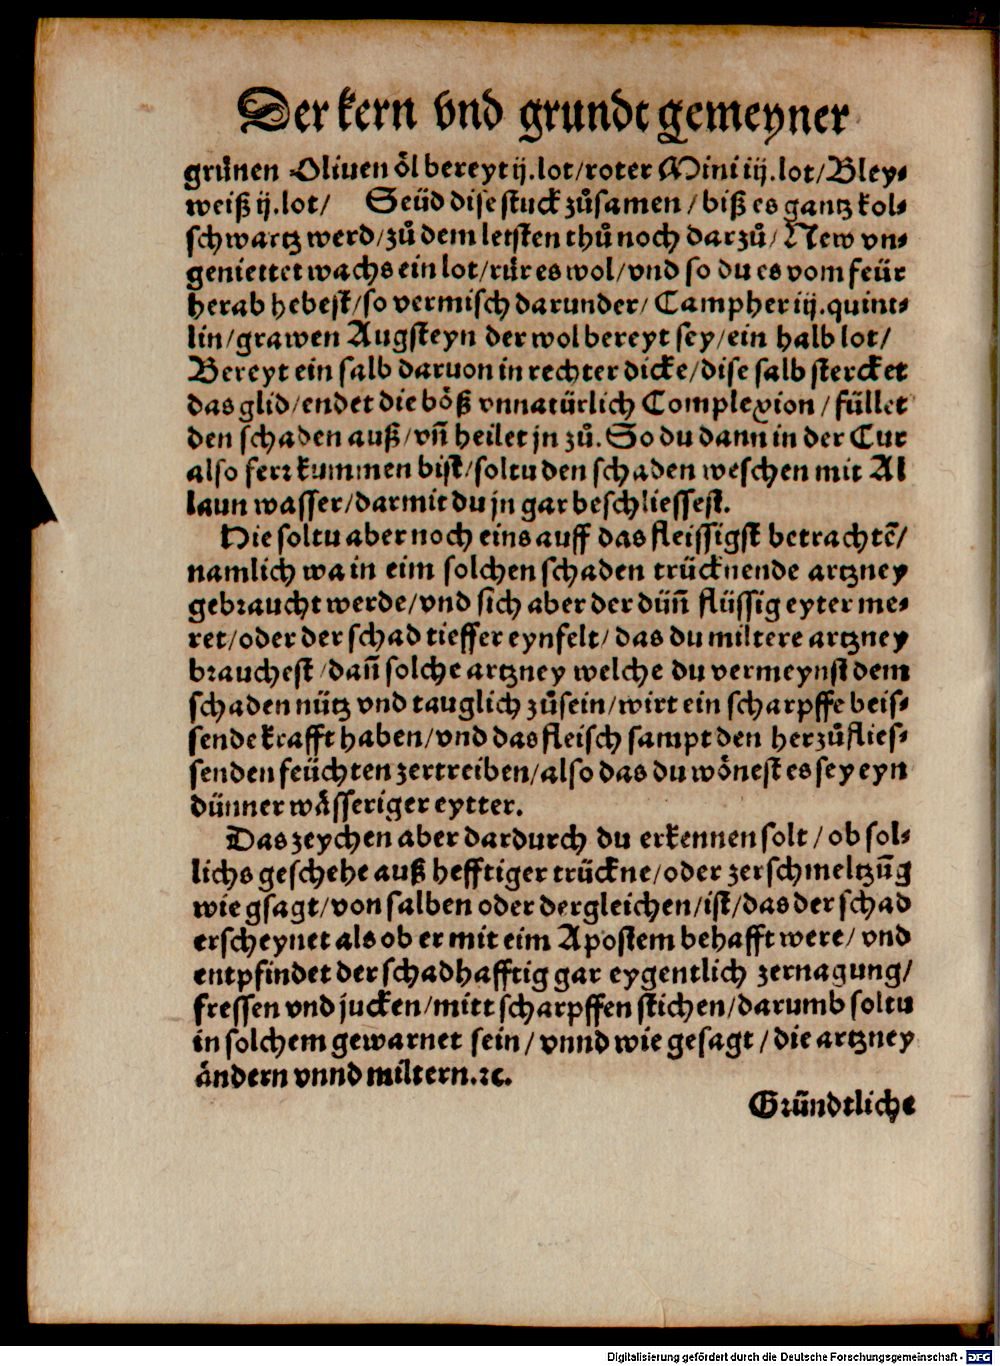 Der kern vnd grundt gemeyner
gruͤnen Oliuen oͤl bereyt ij.lot/roter Mini iij.lot/Bley⸗
weiß ij.lot/ Seüd dise stuck zuͦsamen/biß es gantz kol⸗
schwartz werd/zuͦ dem letsten thuͦ noch darzuͦ/New vn⸗
geniettet wachs ein lot/ruͤr es wol/vnd so du es vom feür
herab hebest/so vermisch darunder/Campher iij.quint⸗
lin/grawen Augsteyn der wol bereyt sey/ein halb lot/
Bereyt ein salb daruon in rechter dicke/dise salb stercket
das glid/endet die boͤß vnnatürlich Complexion/füllet
den schaden auß/vñ heilet jn zuͦ. So du dann in der Cur
also ferr kummen bist/soltu den schaden weschen mit Al
laun wasser/darmit du jn gar beschliessest.
Hie soltu aber noch eins auff das fleissigst betrachtẽ/
namlich wa in eim solchen schaden trücknende artzney
gebraucht werde/vnd sich aber der düñ flüssig eyter me⸗
ret/oder der schad tieffer eynfelt/das du miltere artzney
brauchest/dañ solche artzney welche du vermeynst dem
schaden nütz vnd tauglich zuͦsein/wirt ein scharpffe beis⸗
sende krafft haben/vnd das fleisch sampt den herzuͦflies⸗
senden feüchten zertreiben/also das du woͤnest es sey eyn
dünner waͤsseriger eytter.
Das zeychen aber dardurch du erkennen solt/ob sol⸗
lichs geschehe auß hefftiger trückne/oder zerschmeltzũg
wie gsagt/von salben oder dergleichen/ist/das der schad
erscheynet als ob er mit eim Apostem behafft were/vnd
entpfindet der schadhafftig gar eygentlich zernagung/
fressen vnd jucken/mitt scharpffen stichen/darumb soltu
in solchem gewarnet sein/vnnd wie gesagt/die artzney
aͤndern vnnd miltern.ꝛc.
Gründtliche
Digitalisierung gefördert durch die Deutsche Forschungsgemeinschaft - DFG